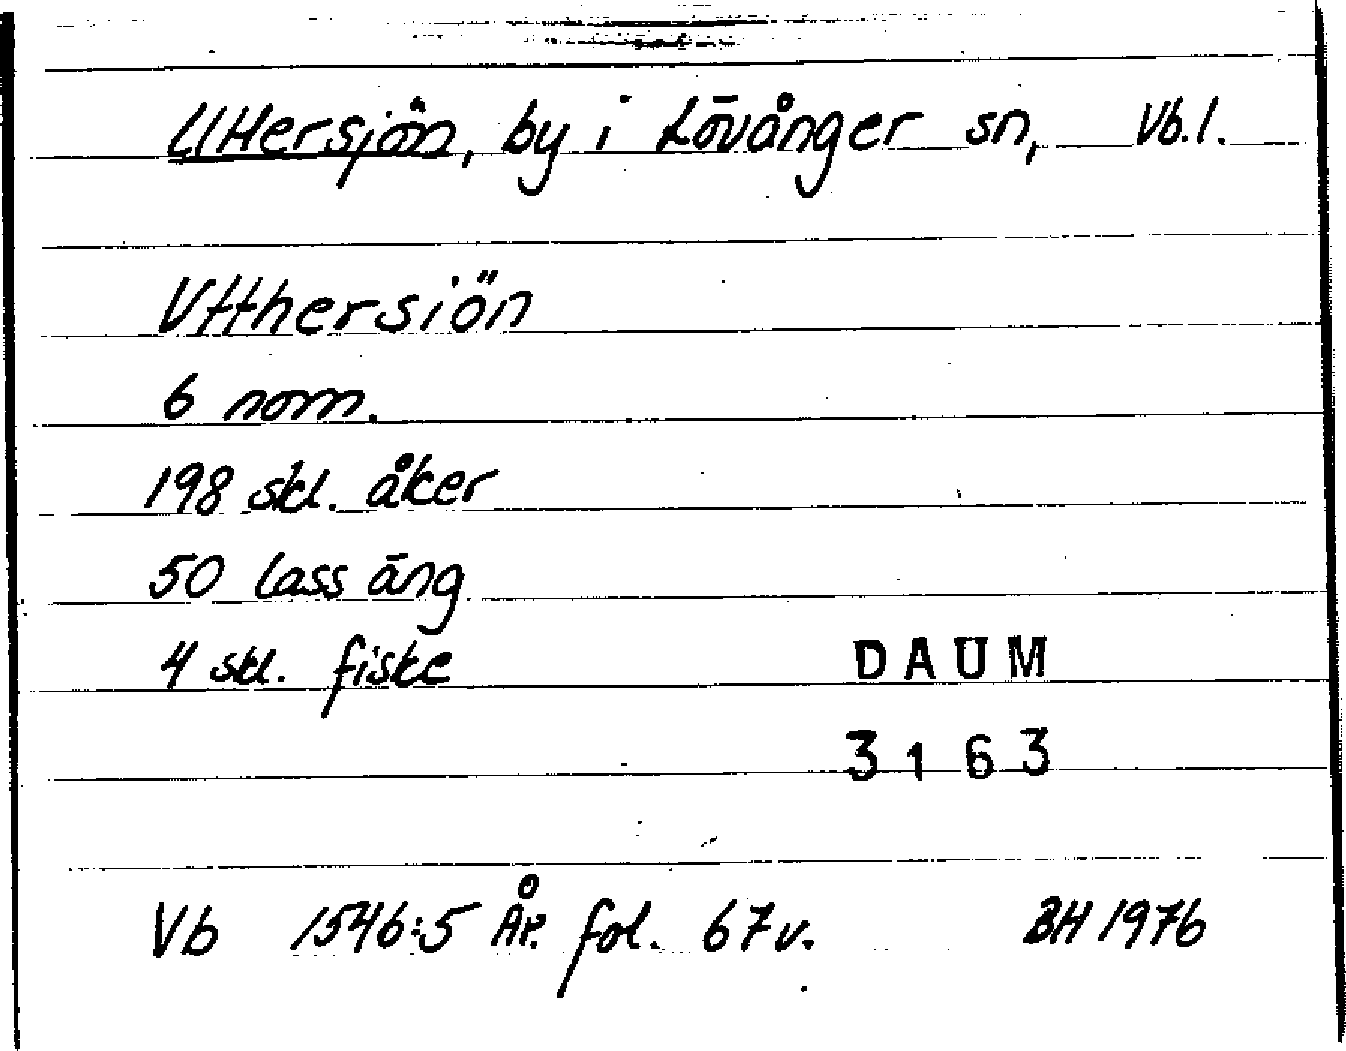 Uttersjön, by i Lövånger sn, Vb.l.
Vtthersiön
6 nom.
198 skl. åker
50 lass äng
4 skl. fiske
DAUM
3163
Vb 1546:5 År. fol. 67v. BH 1976